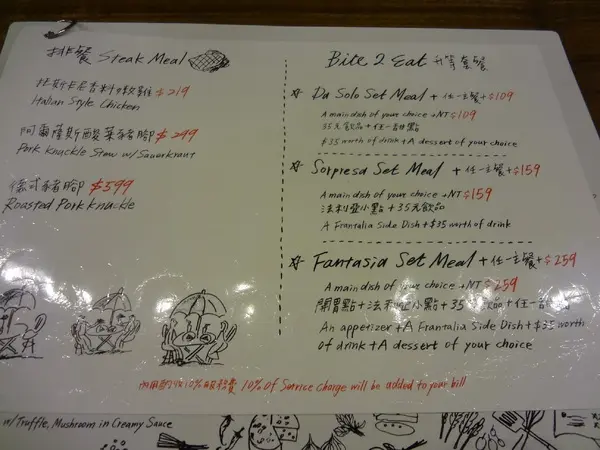 排餐 Steak Meal
托斯卡尼香料嫩雞 $219
Italian Style Chicken
阿爾薩斯酸菜豬腳 $249
Pork Knuckle Stew w/Sauerkraut
德式豬腳 $599
Roasted Pork Knuckle
Bite 2 Eat 升等套餐
Da Solo Set Meal + 任一主餐 + $109
A main dish of your choice + NT $109
35元飲品 + 任一甜點
$35 worth of drink + A dessert of your choice
Sorpresa Set Meal + 任一主餐 + $159
A main dish of your choice + NT $159
法利亞小點 + 35元飲品
A Frantalia Side Dish + $35 worth of drink
Fantasia Set Meal + 任一主餐 + $259
A main dish of your choice + NT $259
開胃點 + 法利亞小點 + 35元飲品 + 任一甜點
An appetizer + A Frantalia Side Dish + $35 worth
of drink + A dessert of your choice
內用酌收10%服務費 10% of Service Charge will be added to your bill
w/Truffle, Mushroom in Creamy Sauce